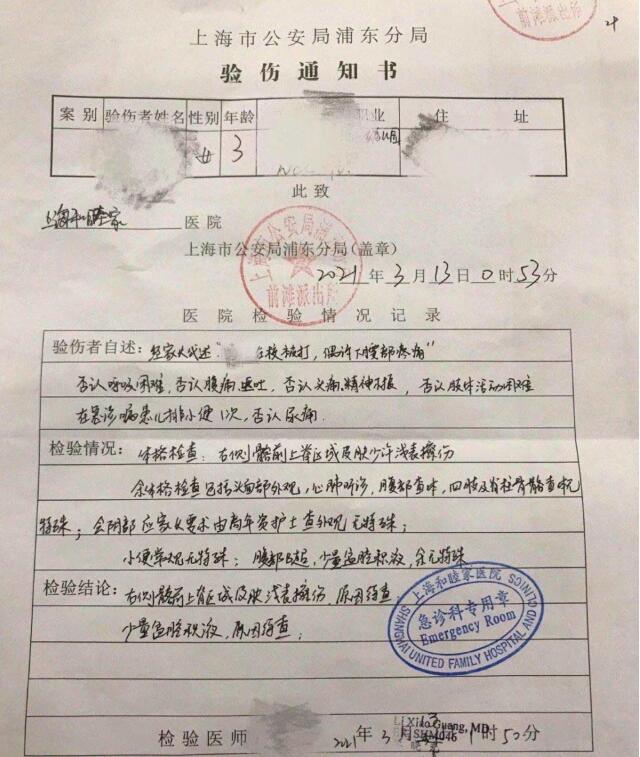 前滩派出所
上海市公安局浦东分局
验伤通知书
案别 验伤者姓名 性别 年龄 职业 住址
女 3
此致
上海和睦家 医院
上海市公安局浦东分局(盖章)
上海市公安局浦东分局
前滩派出所
2021年3月13日0时53分
医院检验情况记录
验伤者自述:经家长代述“ 在校被打,偶诉下腹部疼痛”
否认呼吸困难,否认腹痛、呕吐,否认头痛、精神不振,否认肢体活动困难
在急诊病患儿排小便1次,否认尿痛.
检验情况:体格检查:右侧髂前上脊区域皮肤少许浅表擦伤
余体格检查包括头面部外观,心肺听诊,腹部查体,四肢及脊柱骨骼查体无
特殊;会阴部应家长要求由高年资护士查外观无特殊;
小便常规无特殊;腹部B超,少量盆腔积液,余无特殊
检验结论:右侧髂前上脊区域皮肤浅表擦伤,原因待查;
少量盆腔积液,原因待查;
上海和睦家医院
急诊科专用章
Emergency Room
SHANGHAI UNITED FAMILY HOSPITAL AND CLINICS
检验医师
2021年3月 1时50分
Guang, MD